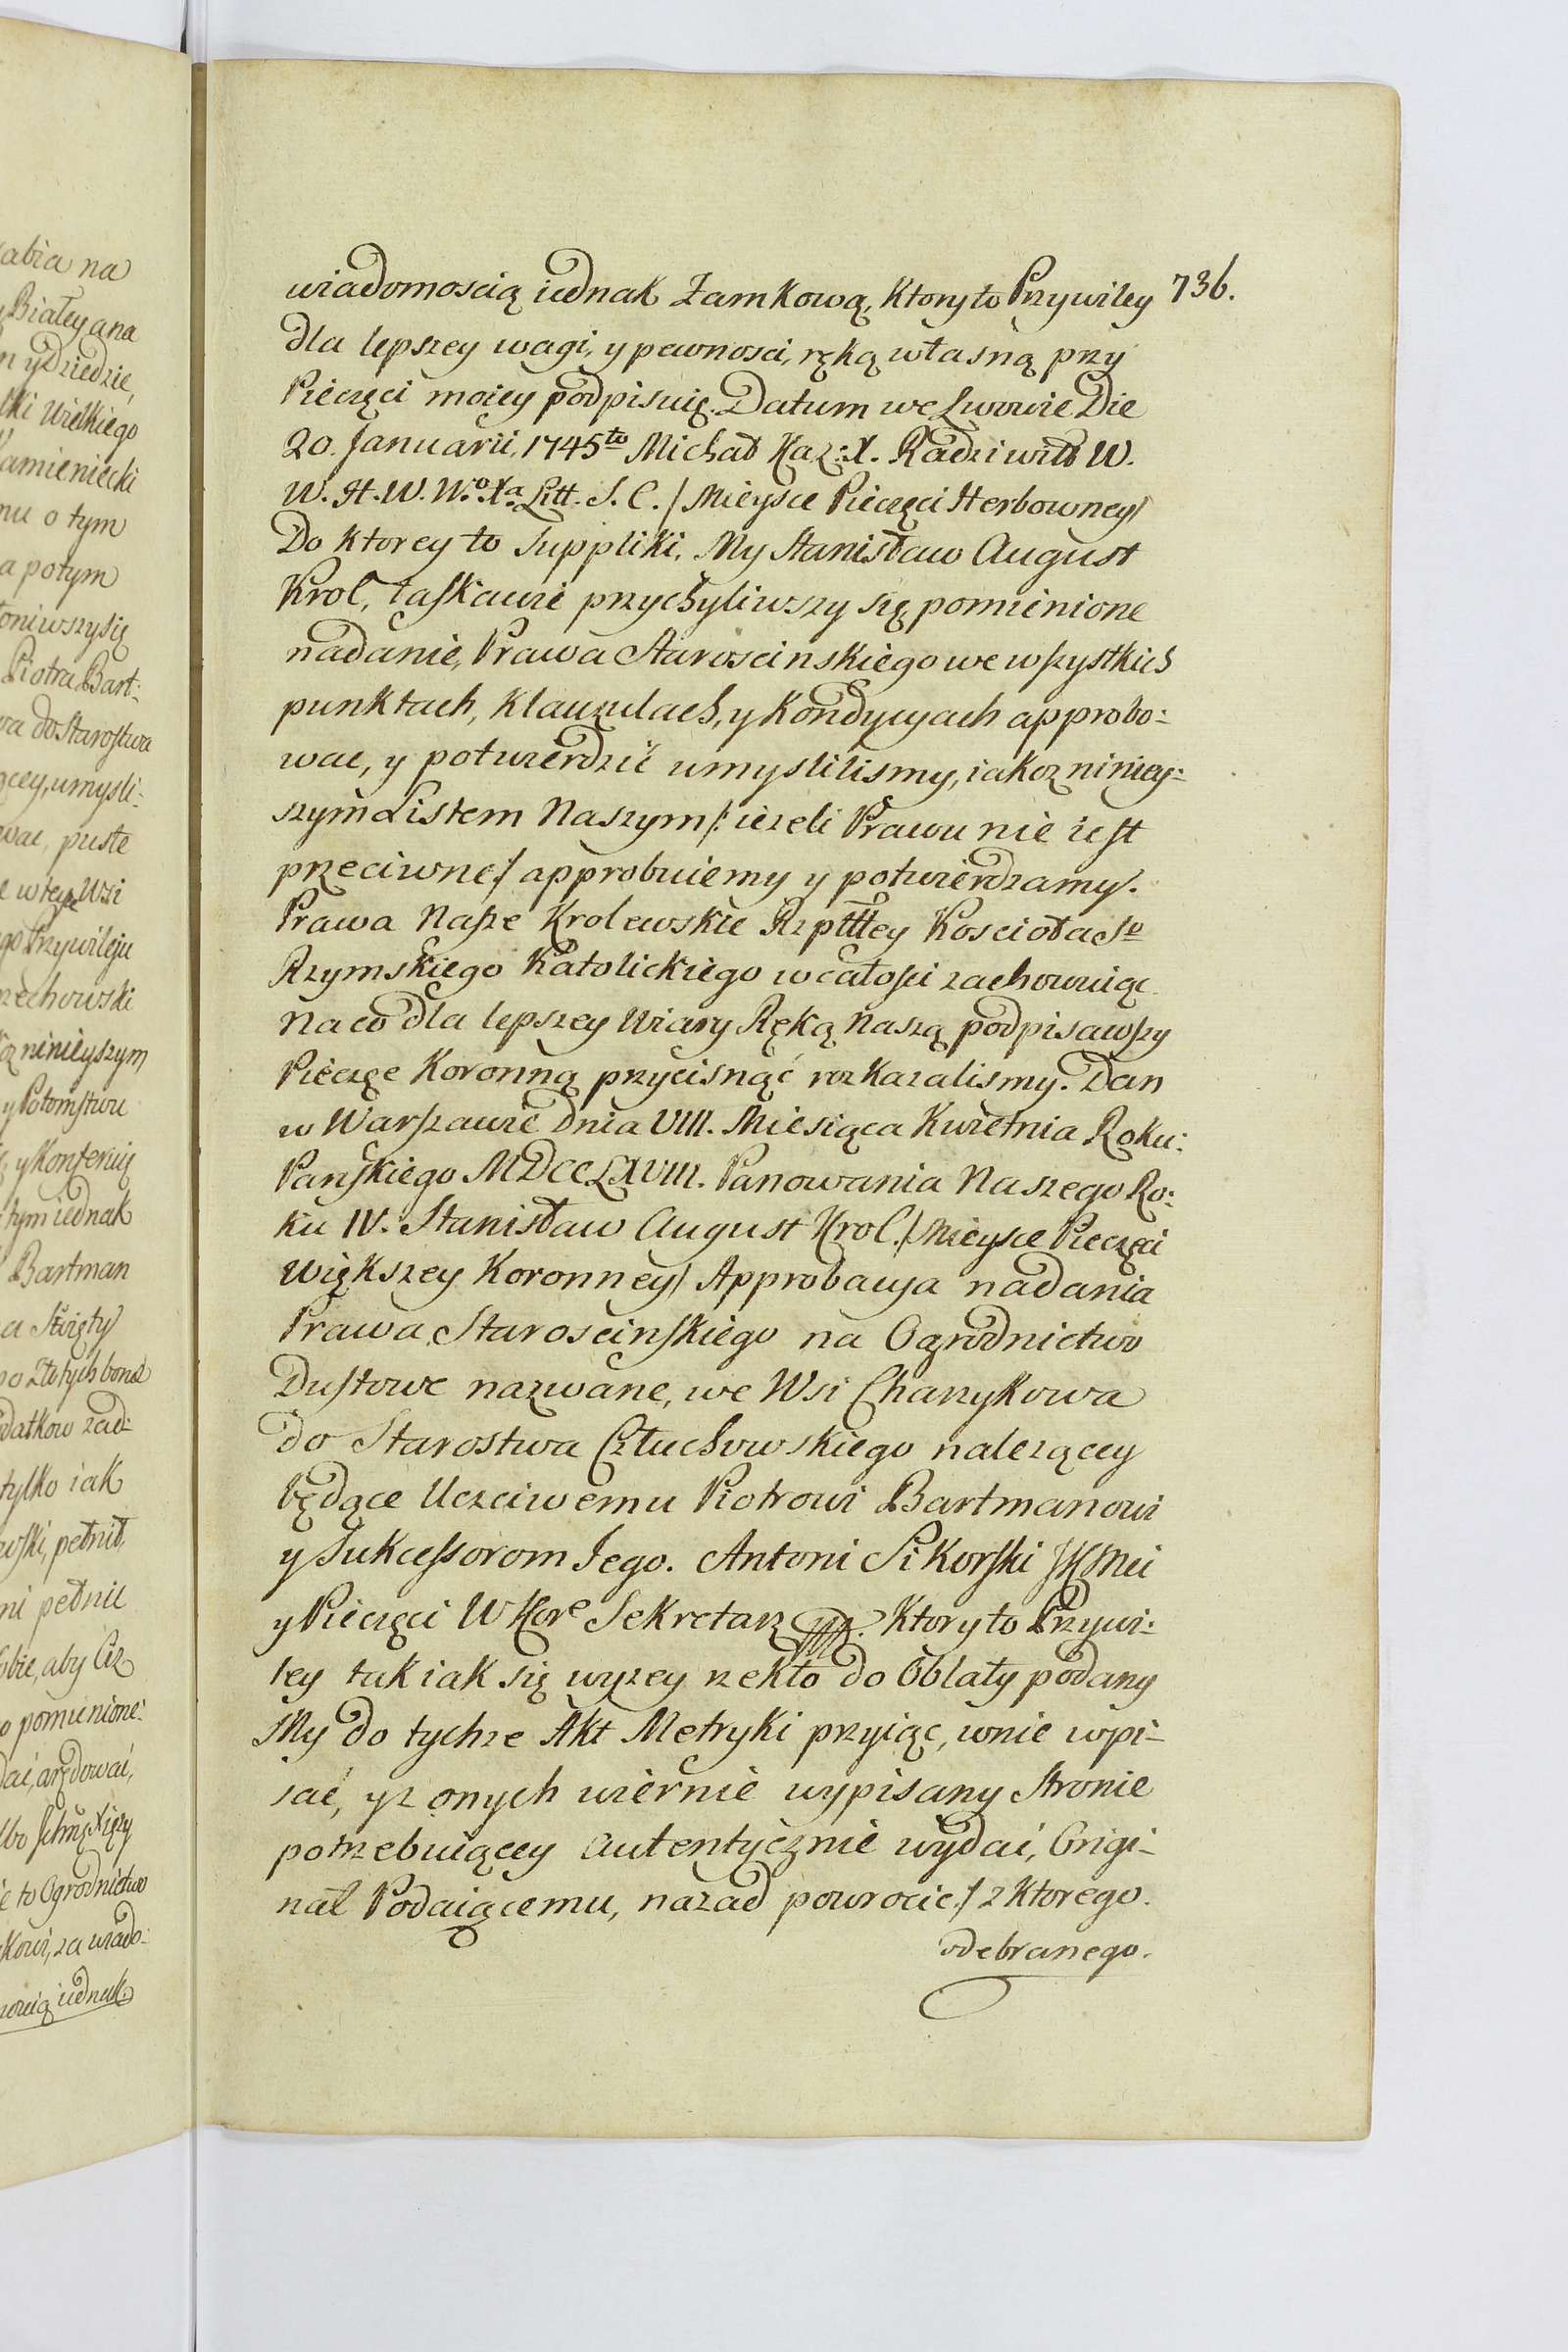 wiadomoscią iednak Zamkową, Ktory to Przywiley 736.
dla lepszey wagi, y pewnosci, ręką własną przy
Pieczęci moiey podpisuię. Datum we Lwowie Die
20. Januarii, 1745to Michał Kaz: X. Radziwiłł W.
W. H. W. W.o Xa Litt. S. C. / Mieysce Pieczęci Herbowney/
Do Ktorey to Suppliki, My Stanisław August
Krol, łaskawie przychyliwszy się, pomienione
nadanie, Prawa Staroscinskiego we wszystkich
punktach, Klauzulach, y Kondycyach approbo:
wac, y potwierdzić umyslilismy, iakoz niniey:
szym Listem Naszym /: iezeli Prawu nie iest
przeciwne / approbuiemy y potwierdzamy.
Prawa Nasze Krolewskie Rzpltttey Koscioła So
Rzymskiego Katolickiego w całosci zachowuiąc
Na co dla lepszey Wiary Ręką Naszą podpisawszy
Pieczęc Koronną przycisnąć rozkazalismy. Dan
w Warszawie Dnia VIII. Miesiąca Kwietnia Roku:
Panskiego MDCCLXVIII. Panowania Naszego Ro:
ku IV. Stanisław August Krol. / Mieysce Pieczęci
Większey Koronney/ Approbacya nadania
Prawa Staroscinskiego na Ogrodnictwo
Dustowe nazwane, we Wsi Charzykowa
do Starostwa Człuchowskiego nalezącey
będące Uczciwemu Piotrowi Bartmanowi
y Sukcessorom Jego. Antoni Sikorski JKMci
y Pieczęci W Kore Sekretarz. Ktory to Przywi:
ley tak iak się wyzey rzekło do Oblaty podany
My do tychze Akt Metryki przyiąc, w nie wpi-
sać, y z onych wiernie wypisany Stronie
potrzebuiącey autentycznie wydać, Origi-
nał Podaiącemu, nazad powrocic / z Ktorego.
odebranego.